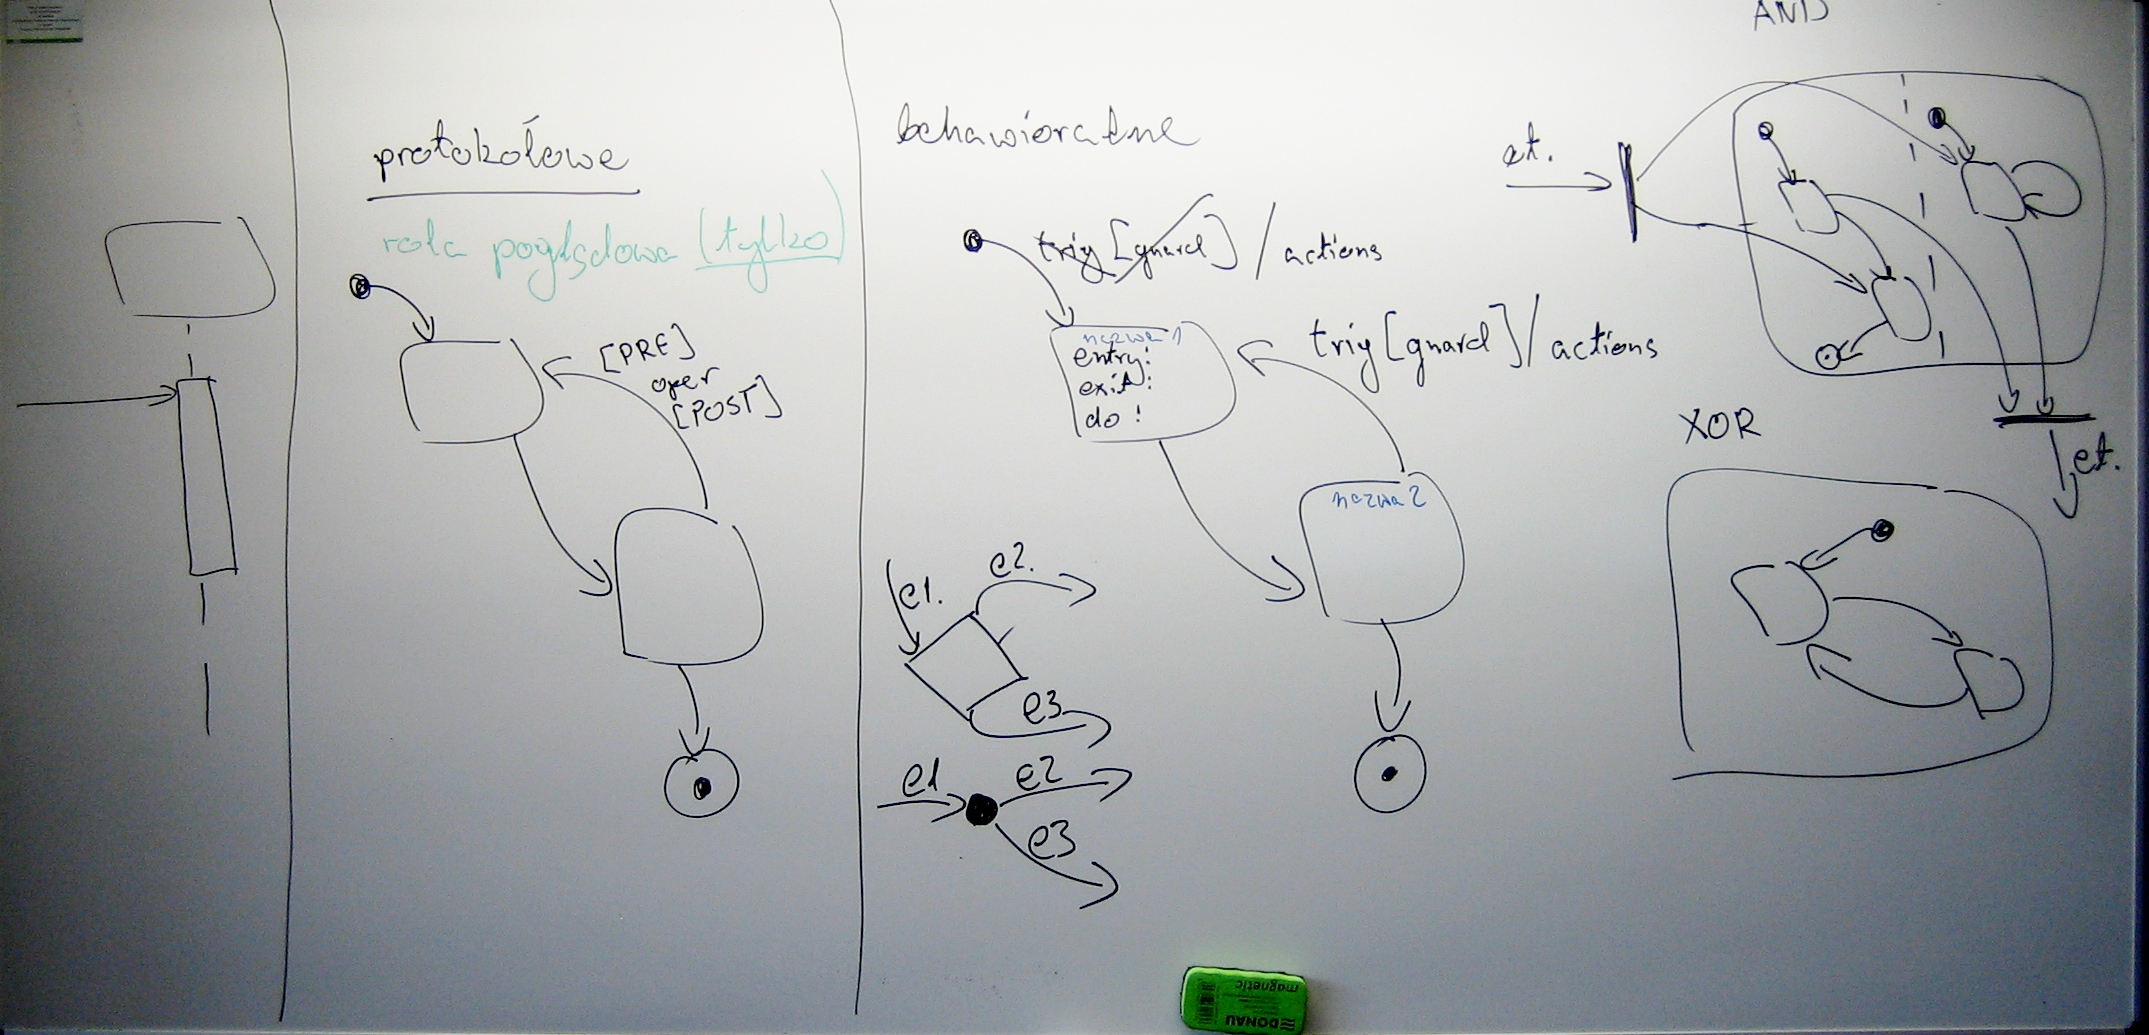 protokołowe
rola poglądowa (tylko)
[PRE]
oper
[POST]
behawioralne
trig [guard] / actions
nazwa 1
entry:
exit:
do:
trig [guard] / actions
nazwa 2
e1.
e2.
e3
e1
e2
e3
AND
et.
et.
XOR
DONAU
magnetic